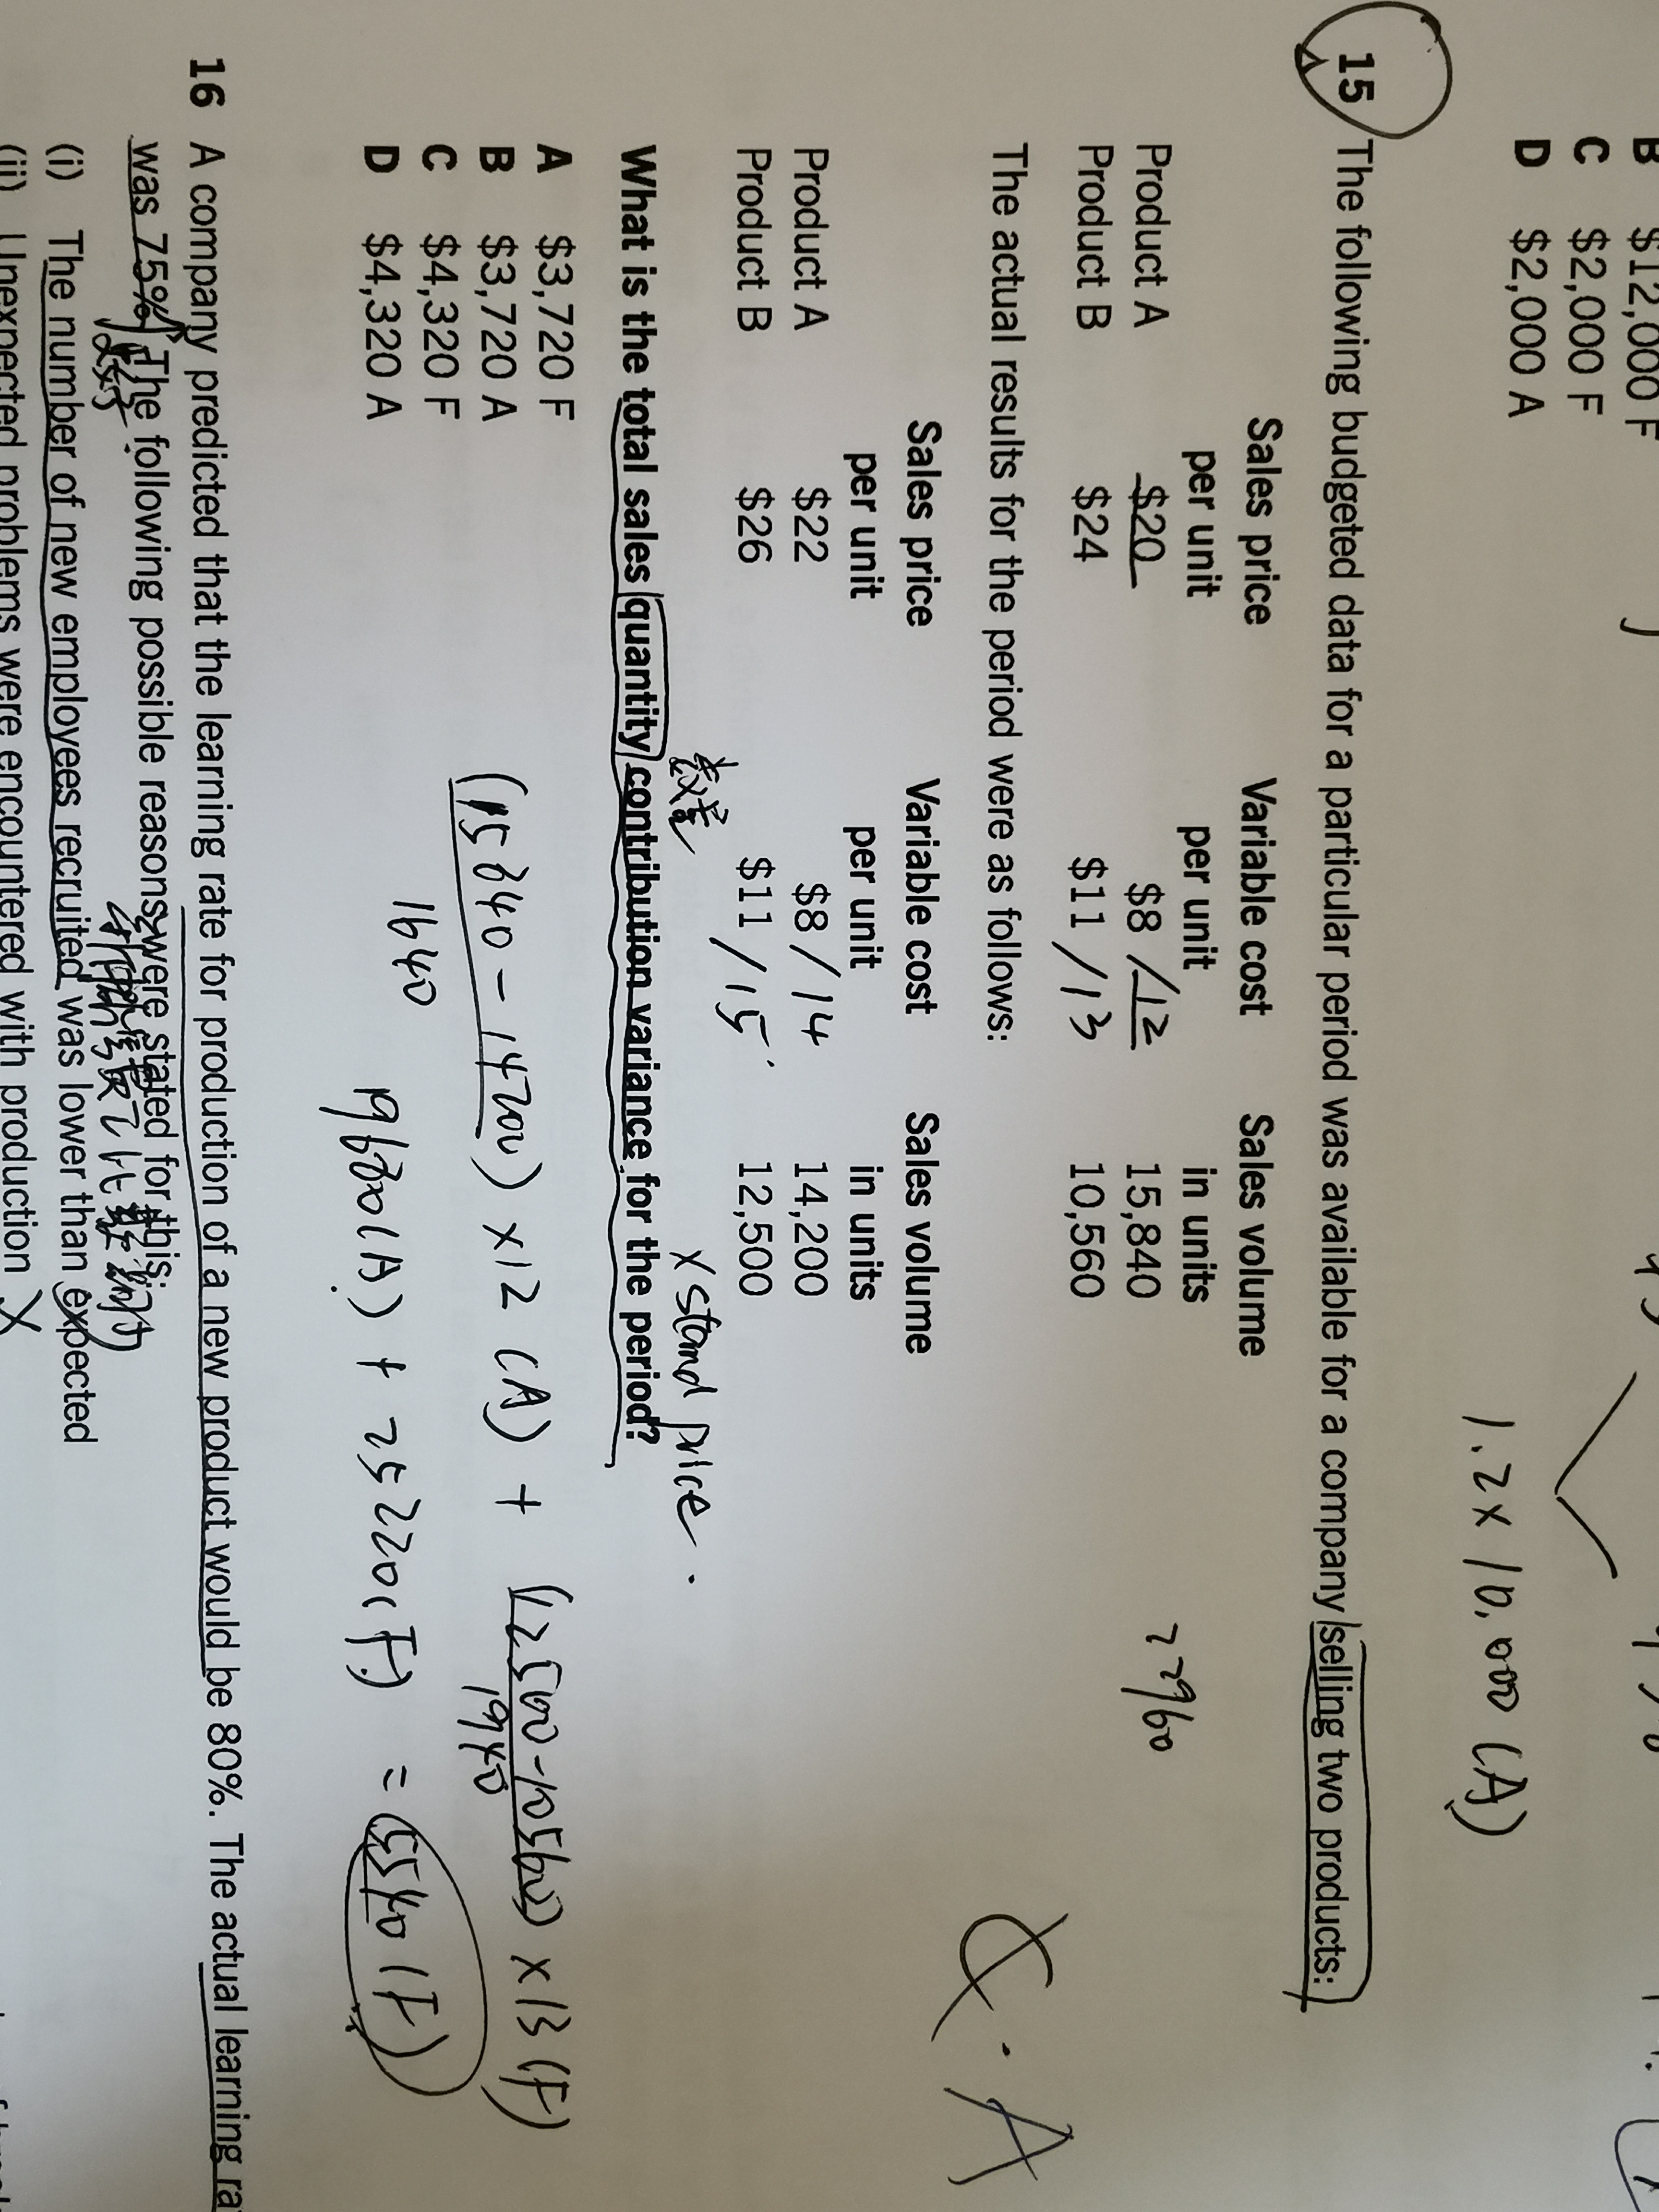 B $12,000 F
C $2,000 F
D $2,000 A
1.2 x 10,000 (A)
15 The following budgeted data for a particular period was available for a company selling two products:
Sales price Variable cost Sales volume
per unit per unit in units
Product A $20 $8 /12 15,840
Product B $24 $11 /13 10,560
The actual results for the period were as follows:
Sales price Variable cost Sales volume
per unit per unit in units
Product A $22 $8 /14 14,200
Product B $26 $11 /15 12,500
数量 x stand price.
What is the total sales quantity contribution variance for the period?
A $3,720 F
B $3,720 A
C $4,320 F
D $4,320 A
A
(15840 - 14200) x12 (A) + (12500-10560) x13 (F)
1640 1940
19680(A) + 25220(F) = 5540 (F)
16 A company predicted that the learning rate for production of a new product would be 80%. The actual learning ra
was 75%. The following possible reasons were stated for this:
(i) The number of new employees recruited was lower than expected
(ii) Unexpected problems were encountered with production X